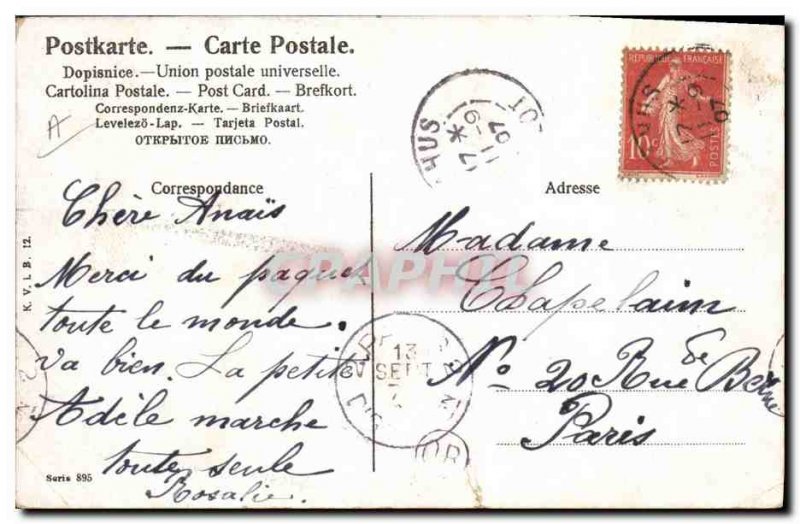 Postkarte. — Carte Postale.
Dopisnice.—Union postale universelle.
Cartolina Postale. — Post Card. — Brefkort.
Correspondenz-Karte. — Briefkaart.
Levelező-Lap. — Tarjeta Postal.
ОТКРЫТОЕ ПИСЬМО.
A
REPUBLIQUE FRANÇAISE
10 c
POSTES
HUS
*
17
11-9
07
Correspondance
Chère Anaïs
Merci du paquet
toute le monde.
va bien. La petite
Adèle marche
toute seule
Rosalie.
Adresse
Madame
Chapelain
No 20 Rue de Berne
Paris
13
SEPT
OR
K. V. i. B. 12.
Serie 895
CPARAMA